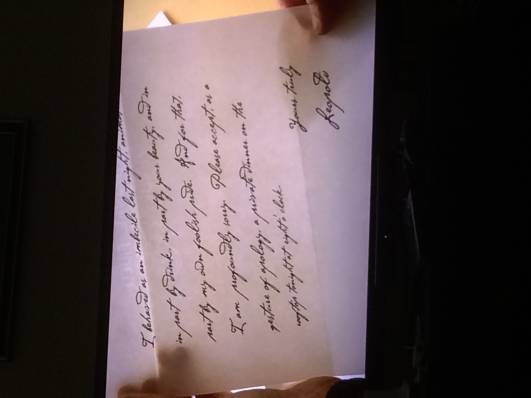 I behaved as an imbecile last night
in part by drink, in part by your beauty, and in
part by my own foolish pride. And for that,
I am profoundly sorry. Please accept, as a
gesture of apology, a private dinner on the
rooftop tonight at eight o'clock
Yours truly
Leopold